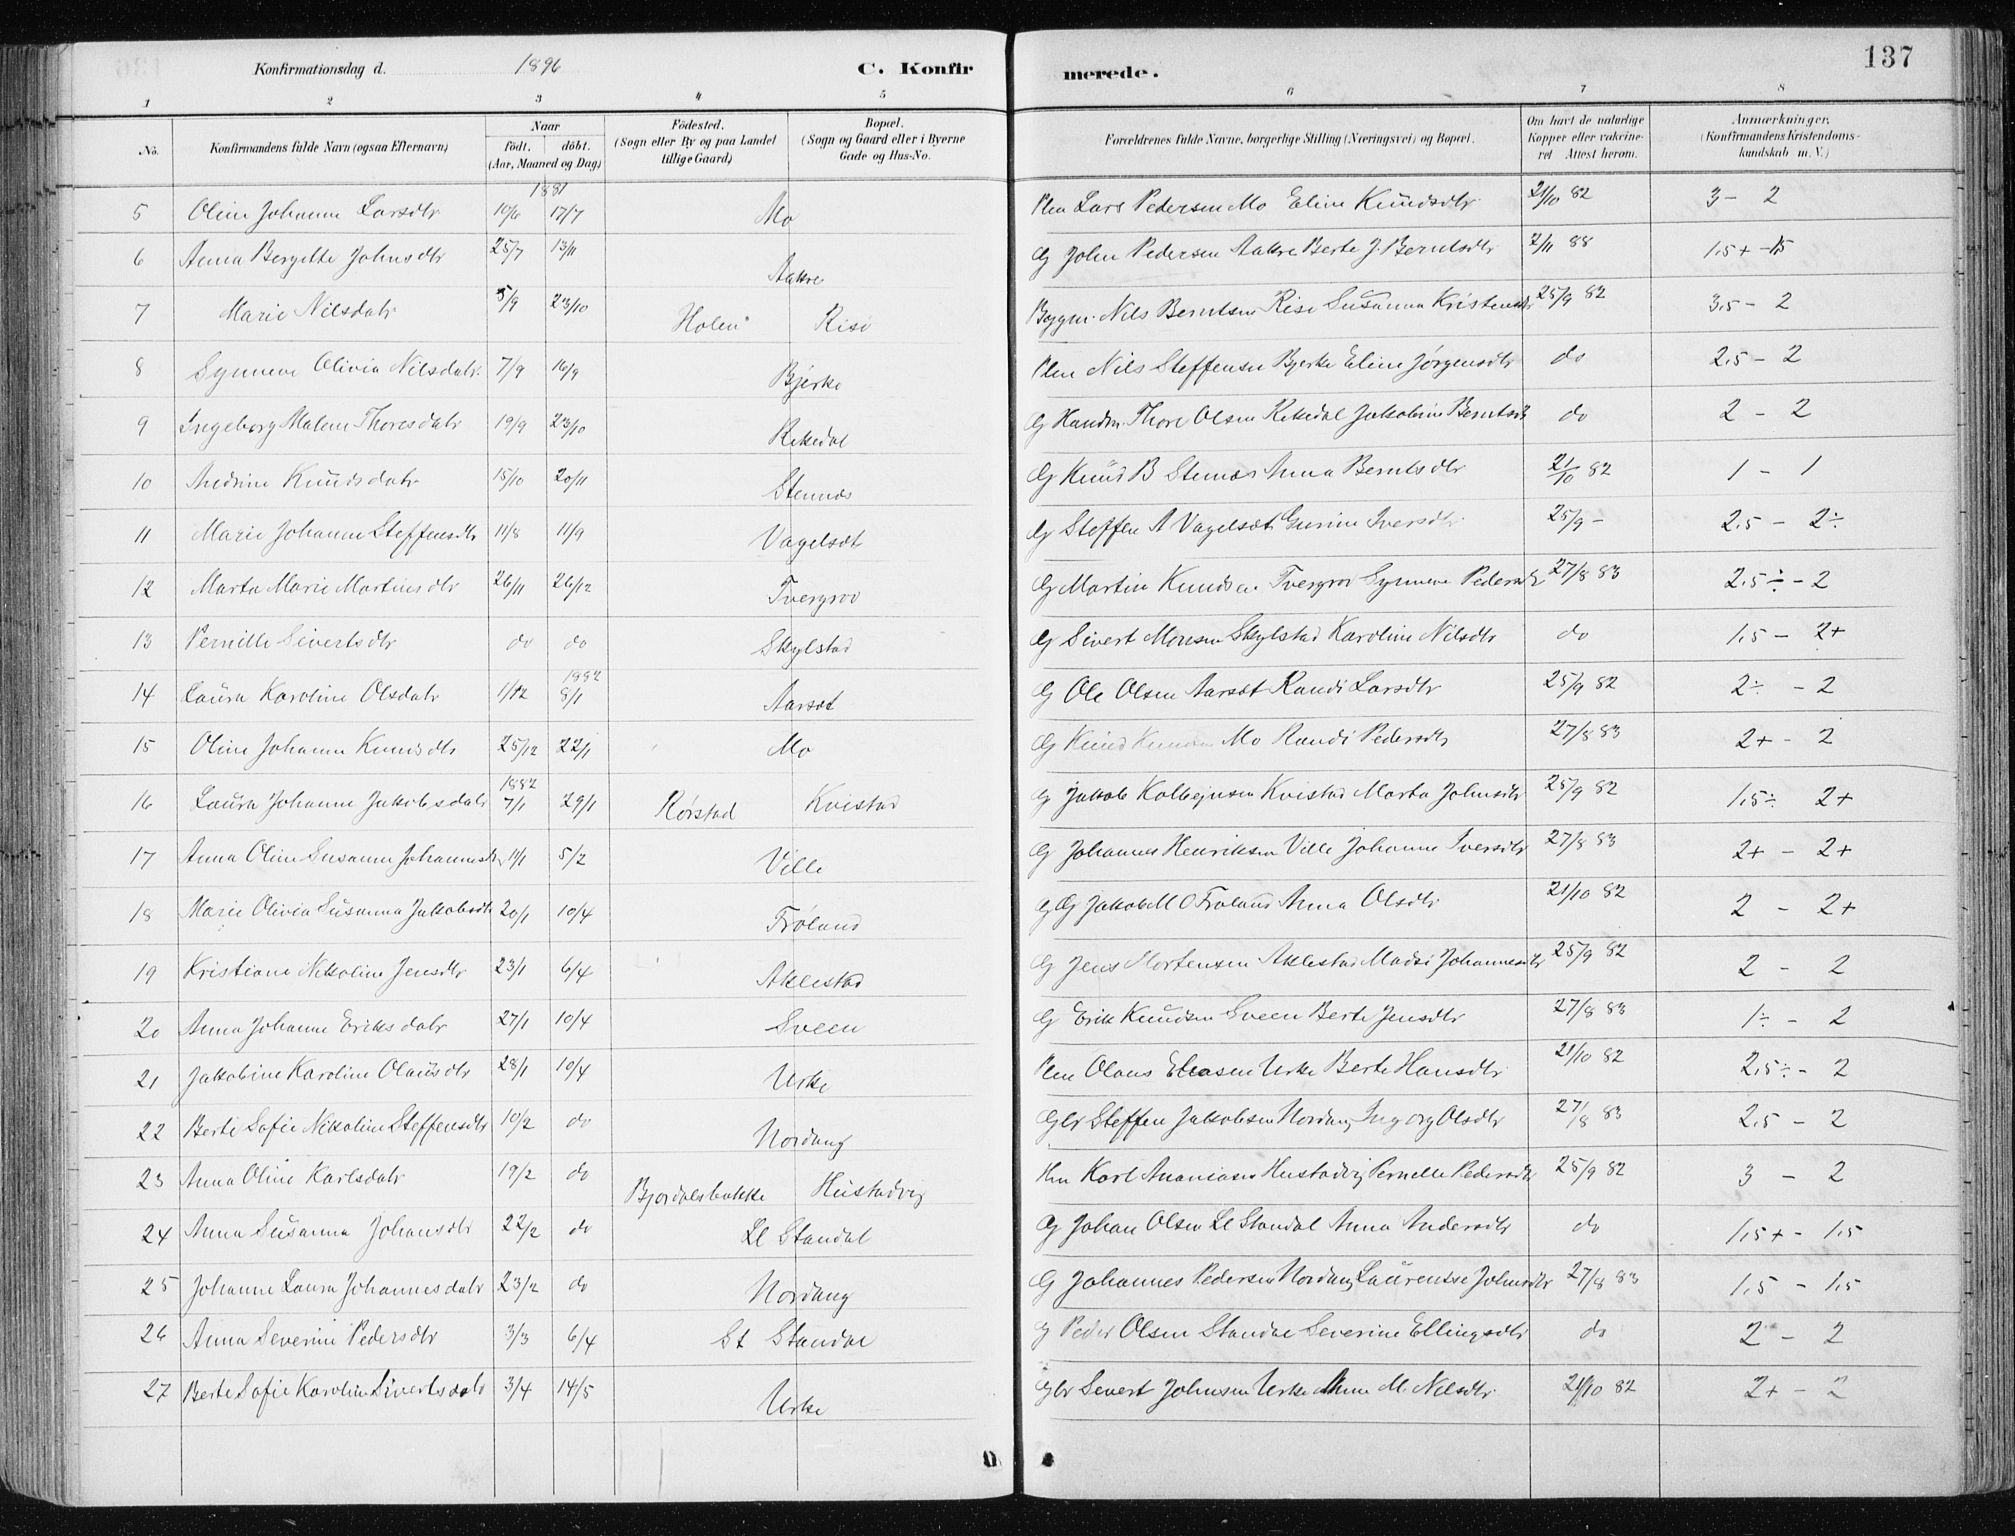 Konfirmationsdag d. 1896 C. Konfirmerede. 137
1 2 3 4 5 6 7 8
No. Konfirmandens fulde Navn (ogsaa Efternavn.) Naar født. døbt. (Aar, Maaned og Dag.) Fødested. (Sogn eller By og paa Landet tillige Gaard.) Bopæl. (Sogn og Gaard eller i Byerne Gade og Hus-No. Forældrenes fulde Navne, borgerlige Stilling (Næringsvei) og Bopæl. Om havt de naturlige Kopper eller vakcineret Attest herom. Anmærkninger. (Konfirmandens Kristendomskundskab m. V.)
1881
5 Oline Johanne Larsdtr 10/6 17/7 Mo Plm Lars Pedersen Mo Eline Knudsdtr 21/10 82 3 - 2
6 Anna Bergitte Johnsdtr 25/7 13/11 Aakre G John Pedersen Aakre Berte J. Berntsdtr 2/11 88 1.5+ - 1.5
7 Marie Nilsdatr 5/9 23/10 Holen Rise Bygm. Nils Berntsen Rise Susanna Kristensdtr 25/9 82 3.5 - 2
8 Synneve Olivia Nilsdatr. 7/9 16/9 Bjerke Plm Nils Steffensen Bjerke Eline Jørgensdtr do 2.5 - 2
9 Ingeborg Malene Thoresdatr 19/9 23/10 Rekedal G Handm. Thore Olsen Rekedal Jakobine Berntsdtr do 2 - 2
10 Andrine Knudsdatr 15/10 20/11 Stennæs G Knud B Stennæs Anna Berntsdtr 21/10 82 1 - 1
11 Marie Johanne Steffensdtr 11/8 11/9 Vagelsæt G Steffen A Vagelsæt Gurine Iversdtr 25/9 - 2.5 - 2÷
12 Marta Marie Martinsdtr 26/11 26/12 Tvergrov G Martin Knudsen Tvergrov Synneve Pedersdtr 27/8 83 2.5÷ - 2
13 Pernille Sivertsdtr do do Skylstad G Sivert Monsen Skylstad Karoline Nilsdtr do 1.5 - 2+
1882
14 Laura Karoline Olsdatr 1/12 8/1 Aarsæt G Ole Olsen Aarsæt Randi Larsdtr 25/9 82 2÷ - 2
15 Oline Johanne Knudsdtr 25/12 22/1 Mo G Knud Knudsen Mo Randi Pedersdtr 27/8 83 2+ - 2
1882
16 Laura Johanne Jakobsdatr 7/1 29/1 Rørstad Kvistad G Jakob Kolbejnsen Kvistad Marta Johnsdtr 25/9 82 1.5÷ 2+
17 Anna Oline Susanne Johannesdtr 11/1 5/2 Ville G Johannes Henriksen Ville Johanne Iversdtr 27/8 83 2+ - 2+
18 Marie Olivia Susanna Jakobsdtr 20/1 10/4 Frøland G Jakob M O Frøland Anna Olsdtr 21/10 82 2 - 2+
19 Kristiane Nikoline Jensdtr 23/1 6/4 Aklestad G Jens Mortensen Aklestad Madsi Johannesdtr 25/9 82 2 - 2
20 Anna Johanne Eriksdatr 27/1 10/4 Sveen G Erik Knudsen Sveen Berte Jensdtr 27/8 83 1÷ - 2
21 Jakobine Karoline Olausdtr 28/1 10/4 Urke Plm Olaus Eliasen Urke Berte Hansdtr 21/10 82 2.5÷ - 2
22 Berte Sofie Nikoline Steffensdtr 10/2 do Nordang Gbr Steffen Jakobsen Nordang Ingborg Olsdtr 27/8 83 2.5 - 2
23 Anna Oline Karlsdatr 19/2 do Bjordalsbakke Hustadvig Hm Karl Ananiasen Hustadvig Pernelle Pedersdtr 25/9 82 3 - 2
24 Anna Susanna Johansdtr 22/2 do Ll Standal G Johan Olsen Ll Standal Anna Andersdtr do 1.5+ - 1.5
25 Johanne Laura Johannesdatr 23/2 do Nordang G Johannes Pedersen Nordang Laurentse Johnsdtr 27/8 83 1.5 - 1.5
26 Anna Severine Pedersdtr 3/3 6/4 St Standal G Peder Olsen Standal Severine Ellingsdtr do 2 - 2
27 Berte Sofie Karoline Sivertsdatr 3/4 14/5 Urke Gbr Sivert Johnsen Urke Anne M. Nilsdtr 21/10 82 2+ - 2